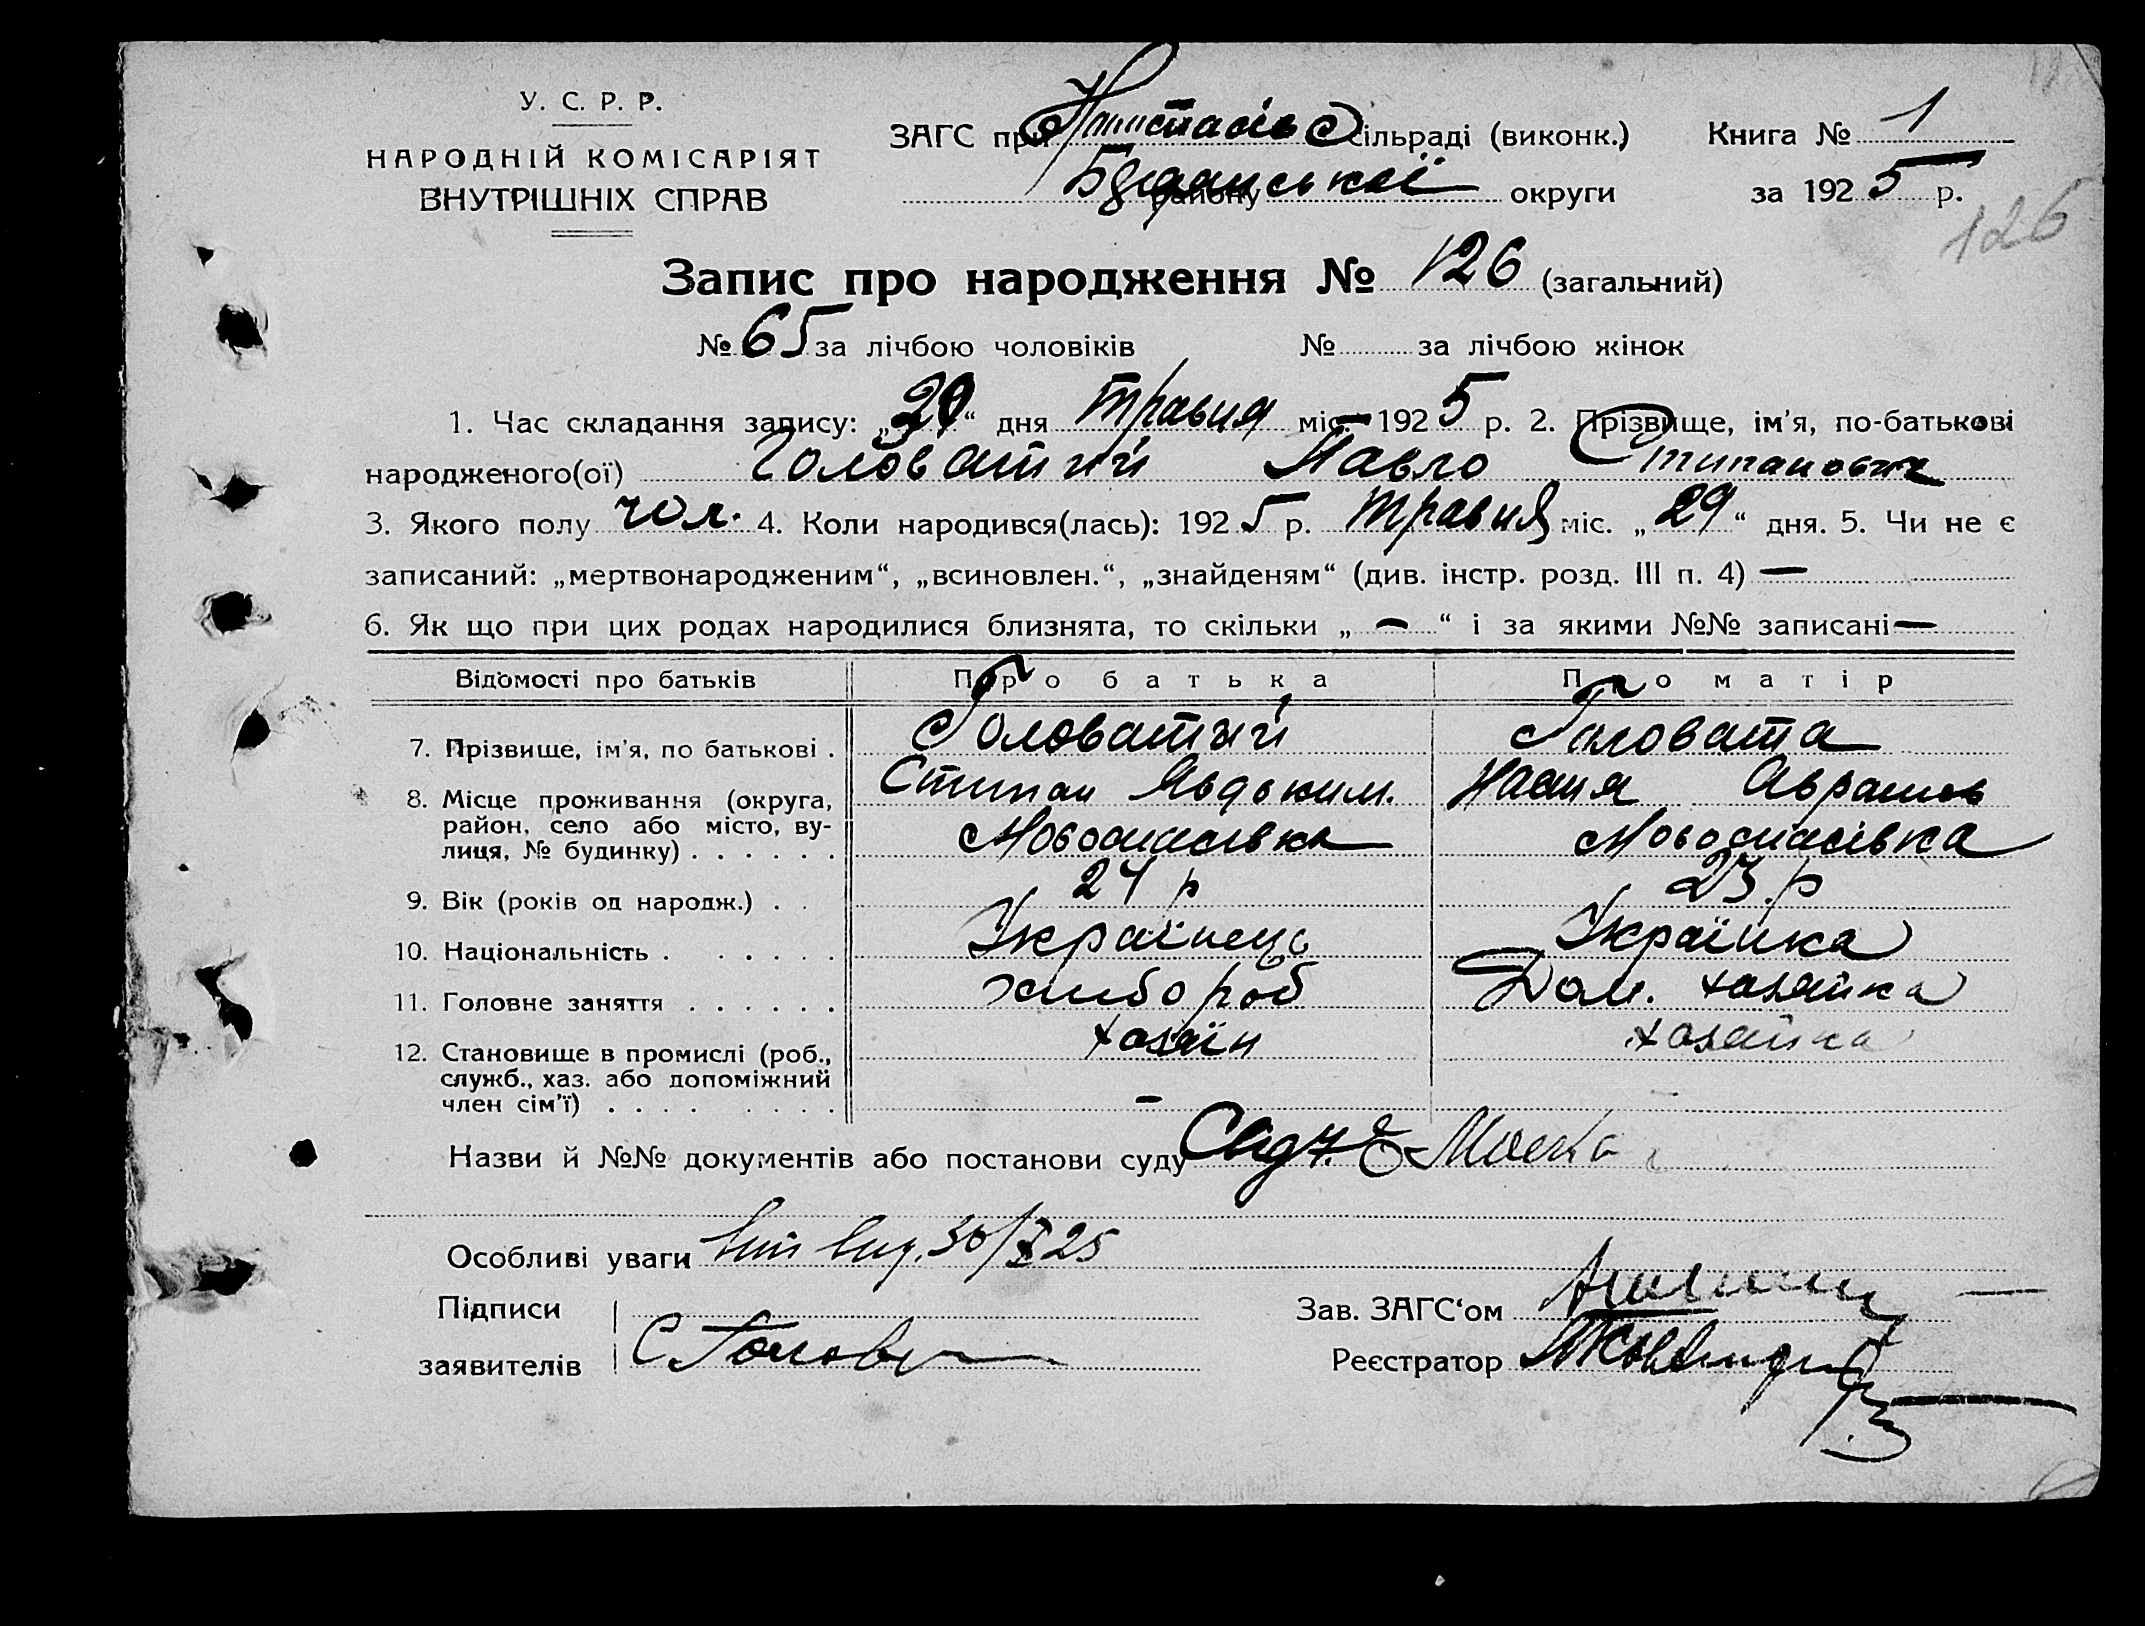 У. С. Р. Р.
НАРОДНІЙ КОМІСАРІЯТ
ВНУТРІШНІХ СПРАВ
ЗАГС при сільраді (виконк.)
району округи
Книга № 1
за 1925 р.
126
Запис про народження № 126 (загальний)
№ 65 за лічбою чоловіків № за лічбою жінок
1. Час складання запису: „29“ дня травня міс. 1925 р. 2. Прізвище, ім'я, по-батькові
народженого(ої) Головатий Павло Стипанович
3. Якого полу чол. 4. Коли народився(лась): 1925 р. травня міс. „29“ дня. 5. Чи не є
записаний: „мертвонародженим“, „всиновлен.“, „знайденям“ (див. інстр. розд. III п. 4) —
6. Як що при цих родах народилися близнята, то скільки „ — “ і за якими №№ записані —
Відомості про батьків Про батька Про матір
7. Прізвище, ім'я, по батькові . Головатий Головата
Стипан Явдоким.
8. Місце проживання (округа,
район, село або місто, ву-
лиця, № будинку) . . . . . . Новоспасівка Новоспасівка
9. Вік (років од народж.) . . 24 р 23 р
10. Національність . . . . . . Українець Українка
11. Головне заняття . . . . . . хлибороб Дом. хазяйка
12. Становище в промислі (роб.,
служб., хаз. або допоміжний
член сім'ї) . . . . . . . . хазяїн хазяйка
—
Назви й №№ документів або постанови суду
Особливі уваги 25
Підписи
заявителів
Зав. ЗАГС'ом
Реєстратор